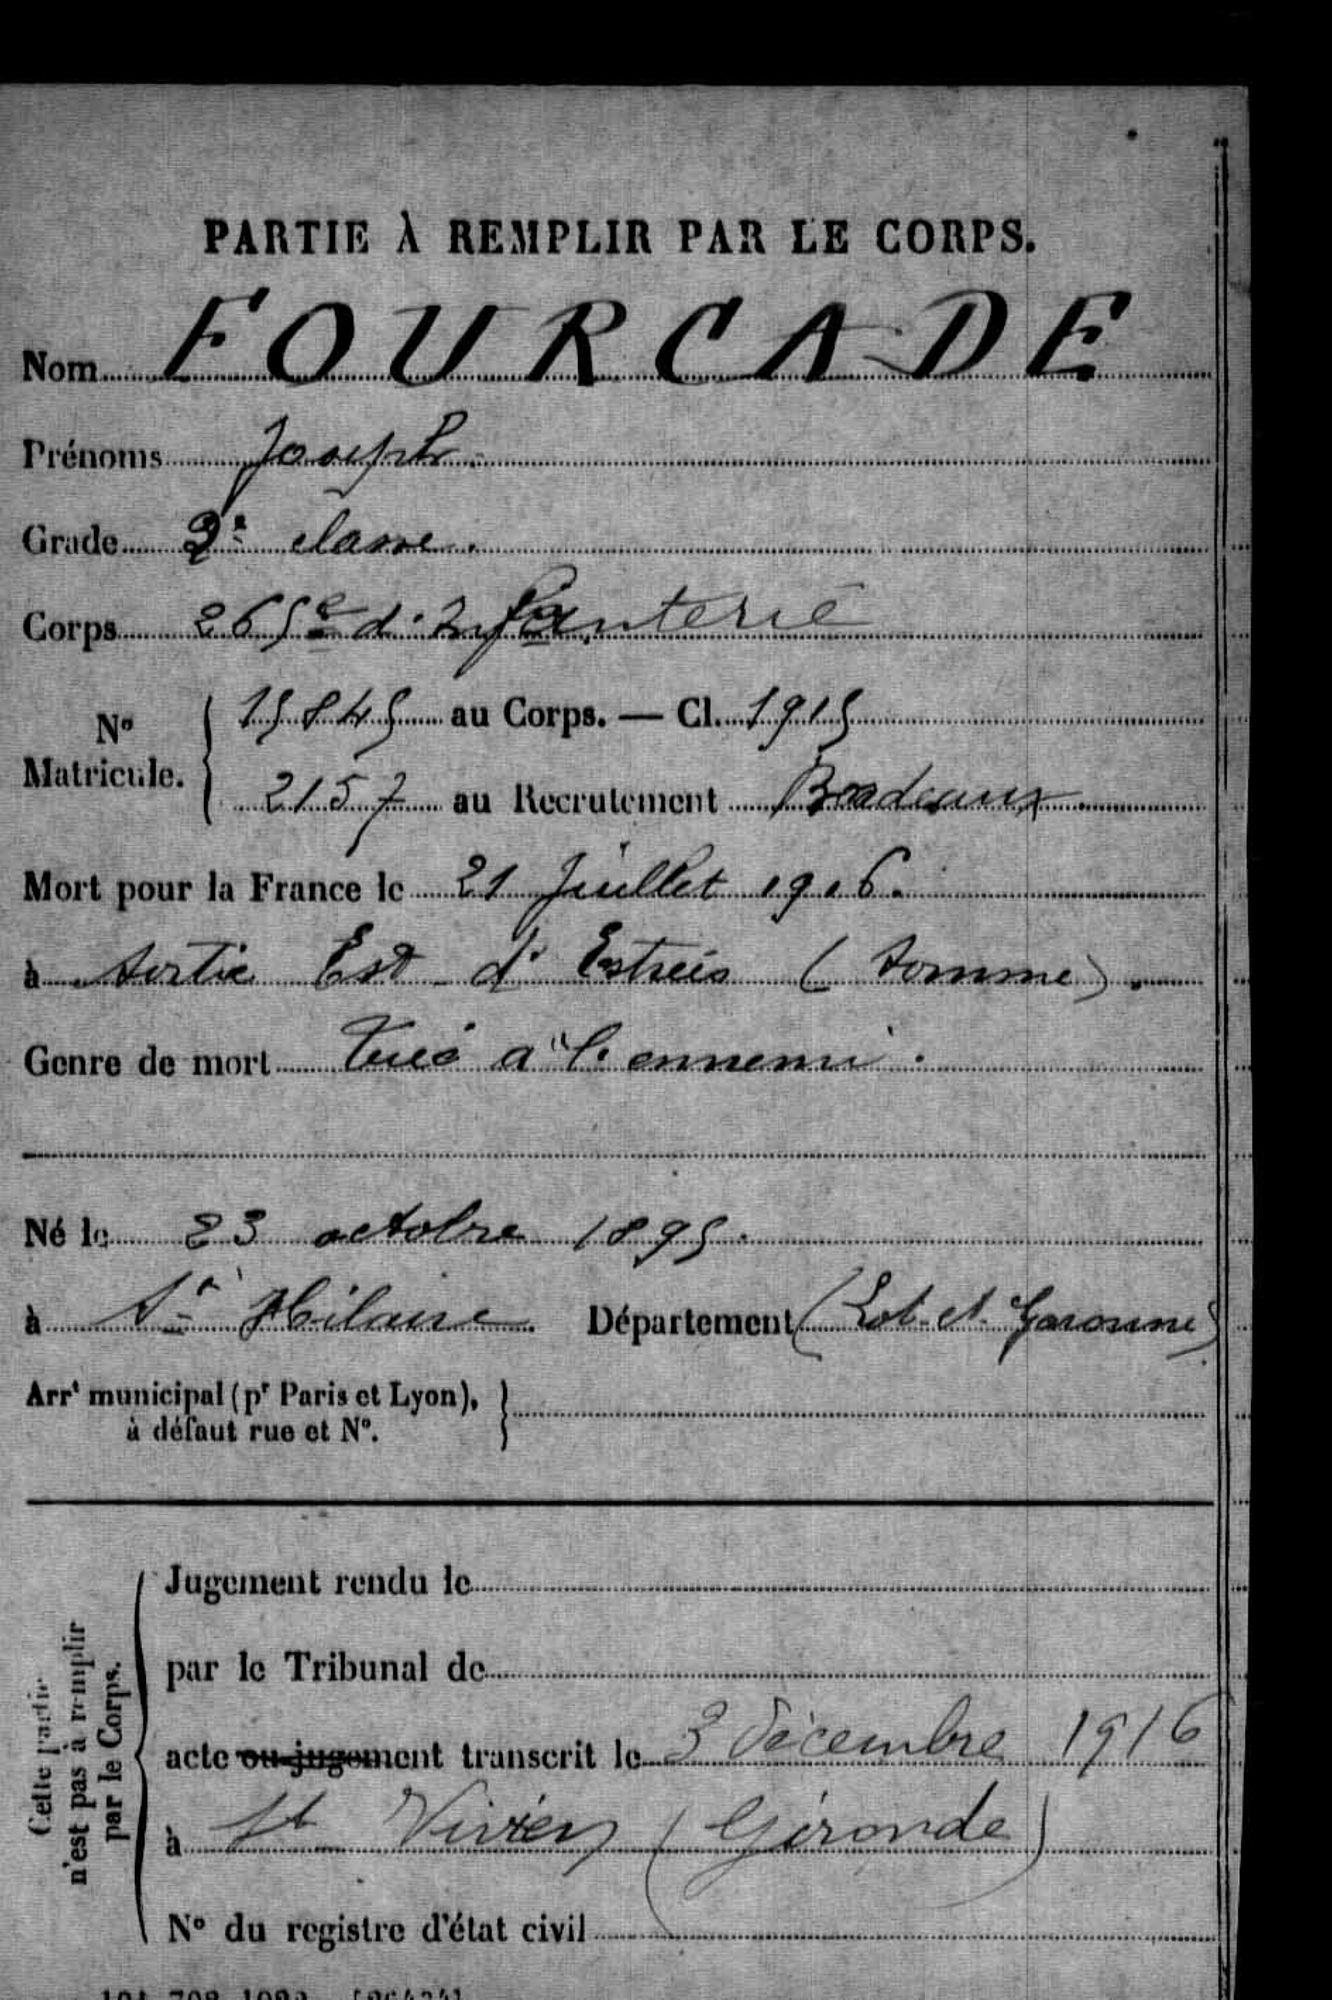 PARTIE À REMPLIR PAR LE CORPS.
Nom FOURCADE
Prénoms Joseph.
Grade 2e classe.
Corps 265e d'Infanterie
No Matricule. { 15845 au Corps. — Cl. 1915
2157 au Recrutement Bordeaux
Mort pour la France le 21 Juillet 1916.
à sortie Est d'Estrées (Somme).
Genre de mort Tué à l'ennemi.
Né le 23 octobre 1895.
à St Hilaire. Département (Lot et Garonne)
Arrt municipal (pr Paris et Lyon),
à défaut rue et No.
Cette partie
n'est pas à remplir
par le Corps.
Jugement rendu le
par le Tribunal de
acte ou jugement transcrit le 3 décembre 1916
à St Vivien (Gironde)
No du registre d'état civil